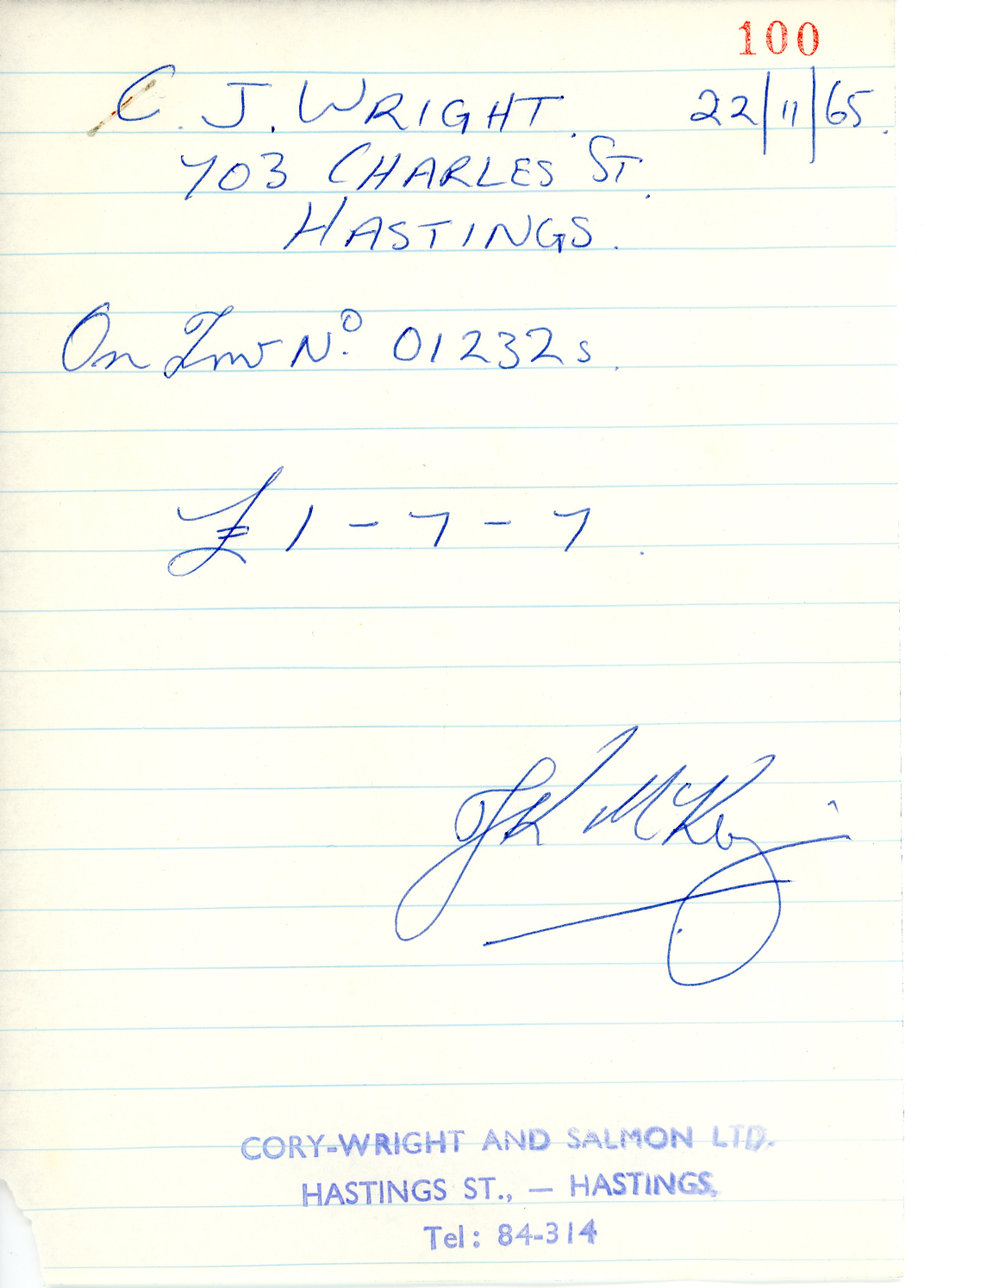 100
C. J. WRIGHT. 22/11/65.
703 CHARLES ST.
HASTINGS.
On Inv No. 01232s.
£1-7-7.
CORY-WRIGHT AND SALMON LTD.
HASTINGS ST., — HASTINGS,
Tel: 84-314